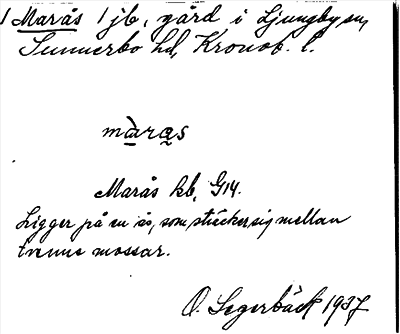 1 Marås 1 jb, gård i Ljungby sn,
Sunnerbo hd, Kronob. l.
màrąs
Marås kb, G14.
Ligger på en ås, som sträcker sig mellan
tvenne mossar.
O. Segerbäck 1937